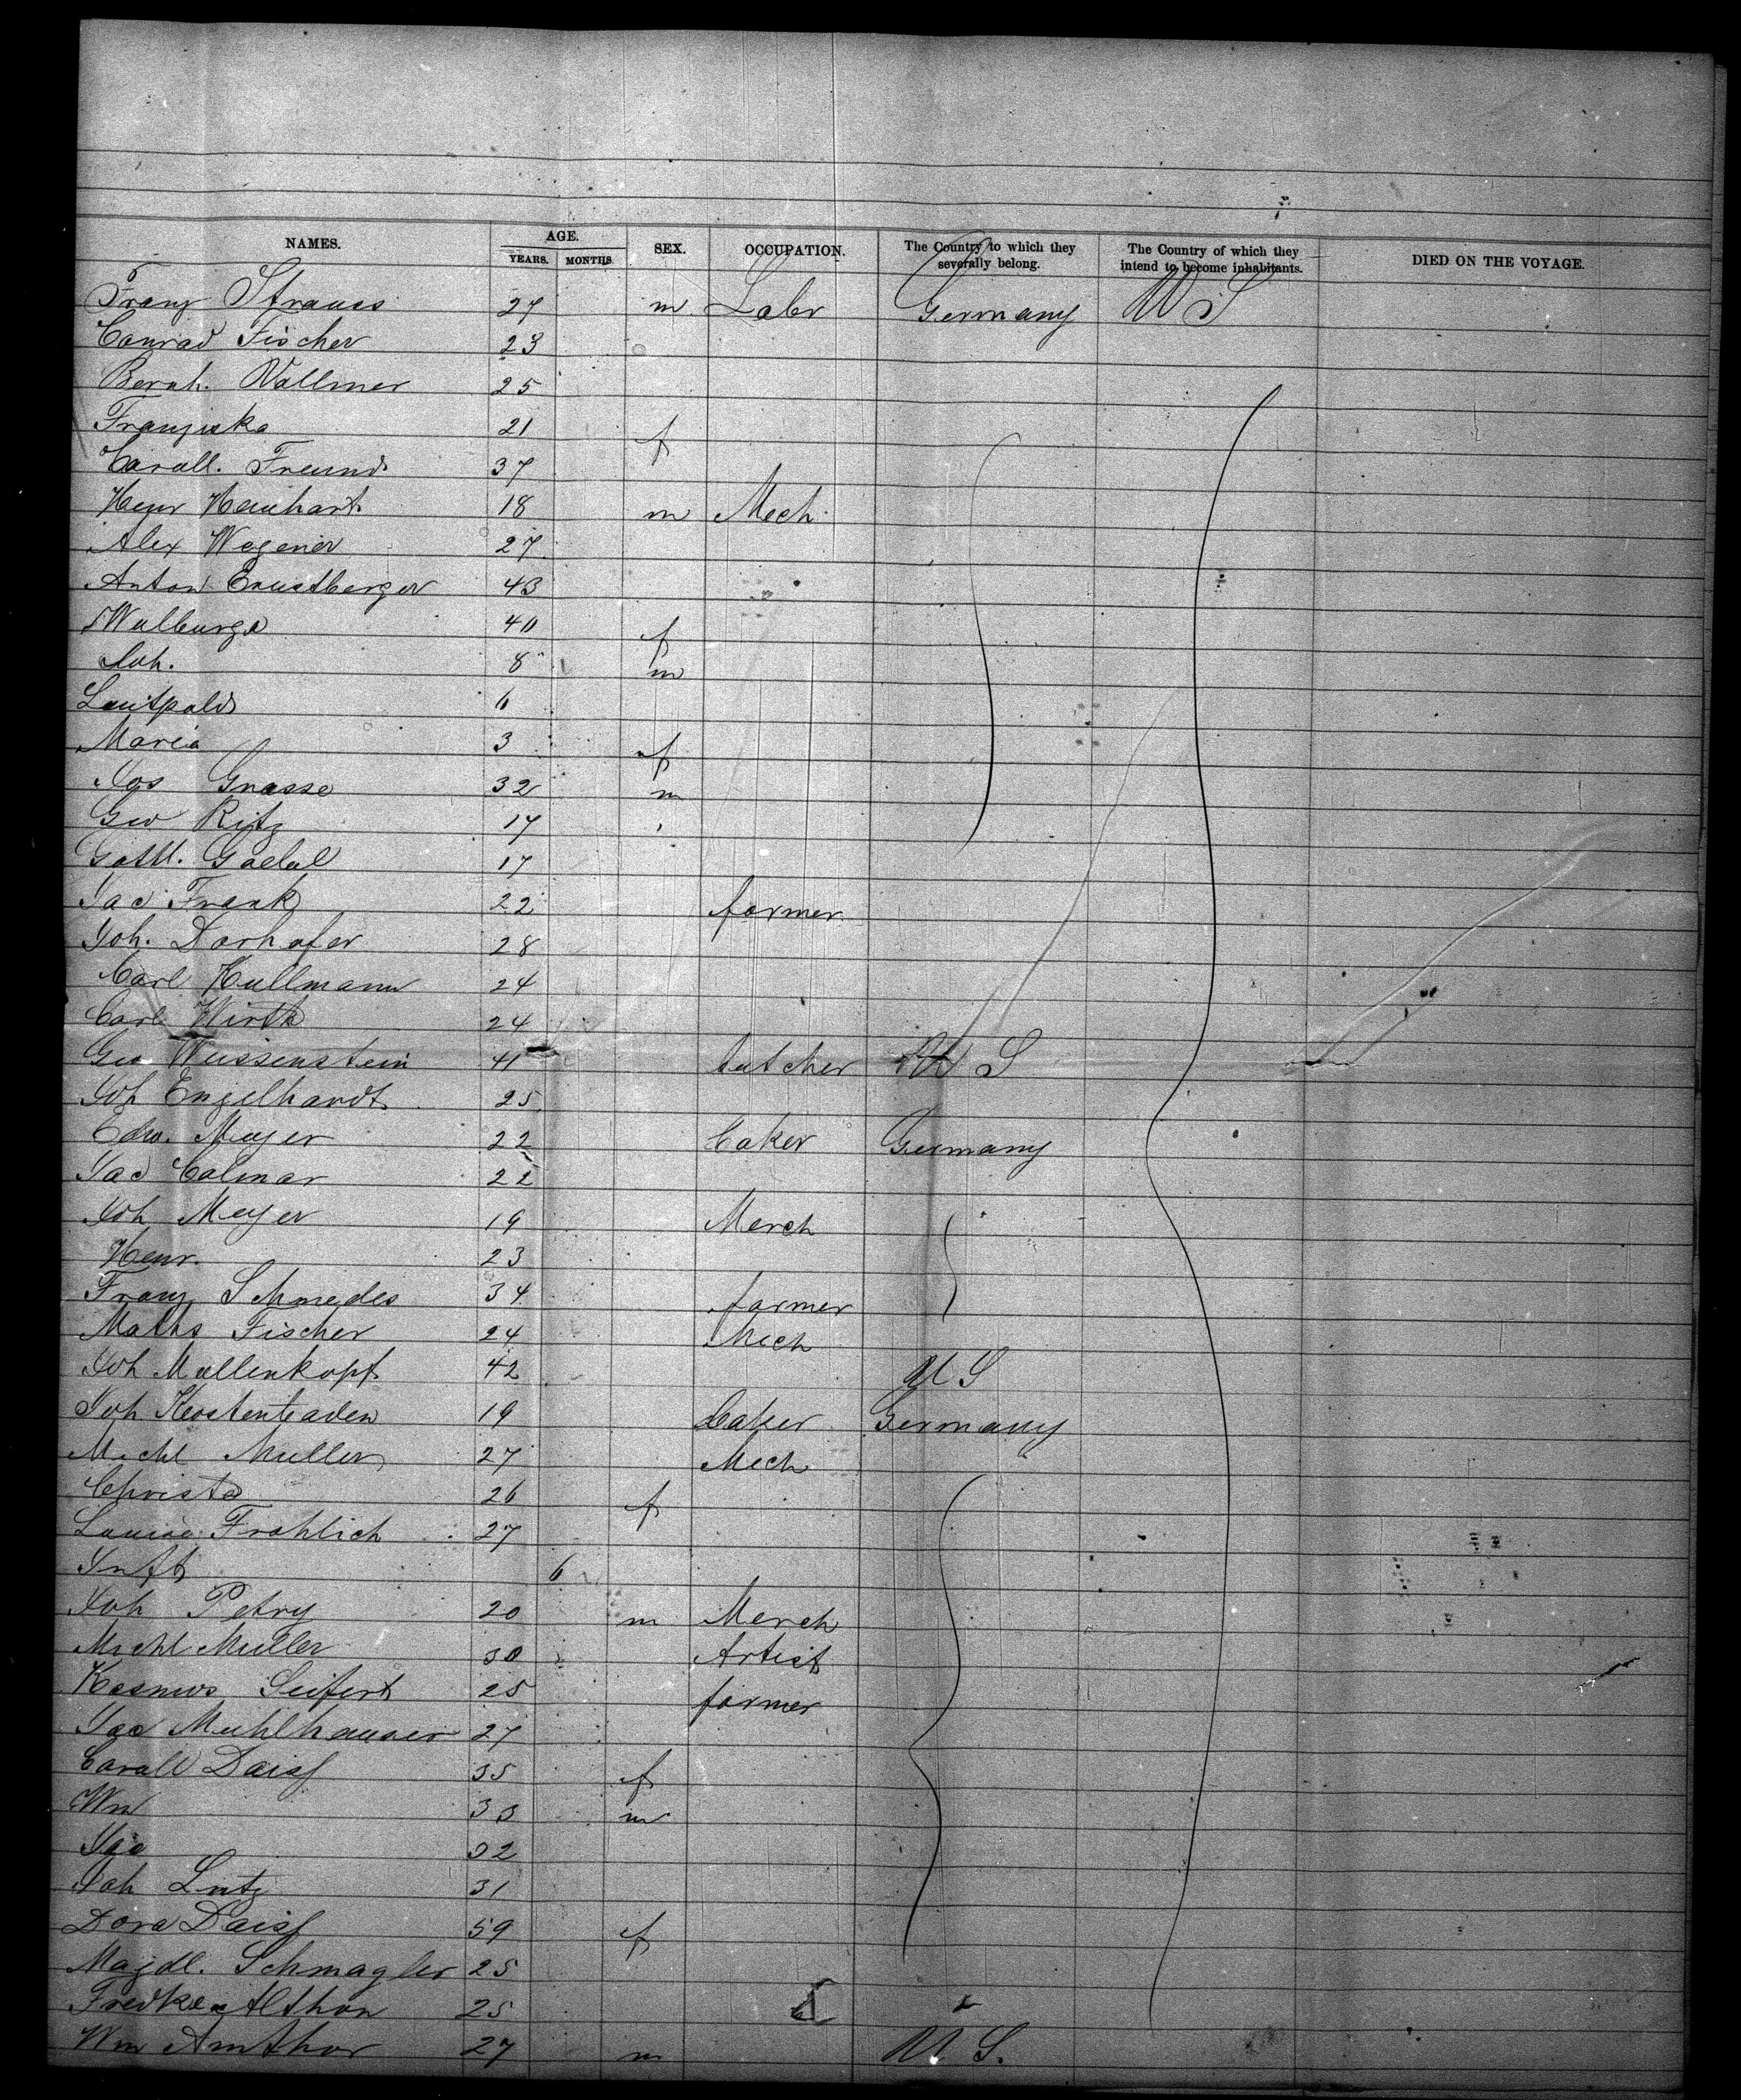 NAMES. AGE. YEARS. MONTHS. SEX. OCCUPATION. The Country to which they severally belong. The Country of which they intend to become inhabitants. DIED ON THE VOYAGE.
Franz Strauss 27 m Labr Germany U S
Conrad Fischer 23
Bernh. Vollmer 25
Franziska 21 f
Caroll. Freund 37
Henr Heinhart 18 m Mech
Alex Wegener 27
Anton Ernstberger 43
Walburga 40 f
Joh. 8 m
Luitpold 6
Maria 3 f
Jos Gnasse 32 m
Geo Ritz 17
Gottl. Goebel 17
Jac Frank 22 farmer
Joh. Dorhofer 28
Carl Kullmann 24
Carl Wirth 24
Geo Weissenstein 41 butcher U S
Joh Engelhardt 25
Edw. Meyer 22 baker Germany
Jac Colmar 22
Joh Meyer 19 Merch
Henr. 23
Franz Schmedes 34 farmer
Maths Fischer 24 Mech
Joh Mullenkopf 42 U S
Joh 19 baker Germany
Michl Muller 27 Mech
Christa 26 f
Louise Frohlich 27
Inft 6
Joh Petry 20 m Merch
Michl Muller 30 Artist
Seifert 25 farmer
Jac Muhlhauser 27
Caroll Daisf 35 f
Wm 30 m
Jac 32
Joh Lutz 31
Dora Daisf 59 f
Magdl. Schmagler 25
Fredke Althon 25
Wm Amthor 27 m U. S.